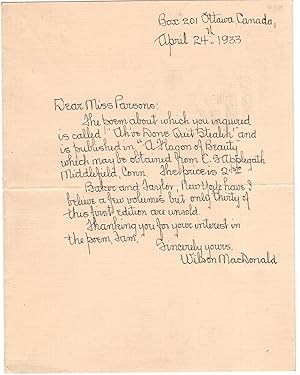 Box 201 Ottawa Canada,
April 24th 1933
Dear Miss Parsons:
The poem about which you inquired
is called "Ah've Done Quit Stealin'" and
is published in "A Flagon of Beauty"
which may be obtained from C. F. Applegath
Middlefield, Conn. The price is 2.
Baker and Taylor, New York have I
believe a few volumes but only thirty of
this first edition are unsold.
Thanking you for your interest in
the poem, I am,
Sincerely yours,
Wilson MacDonald